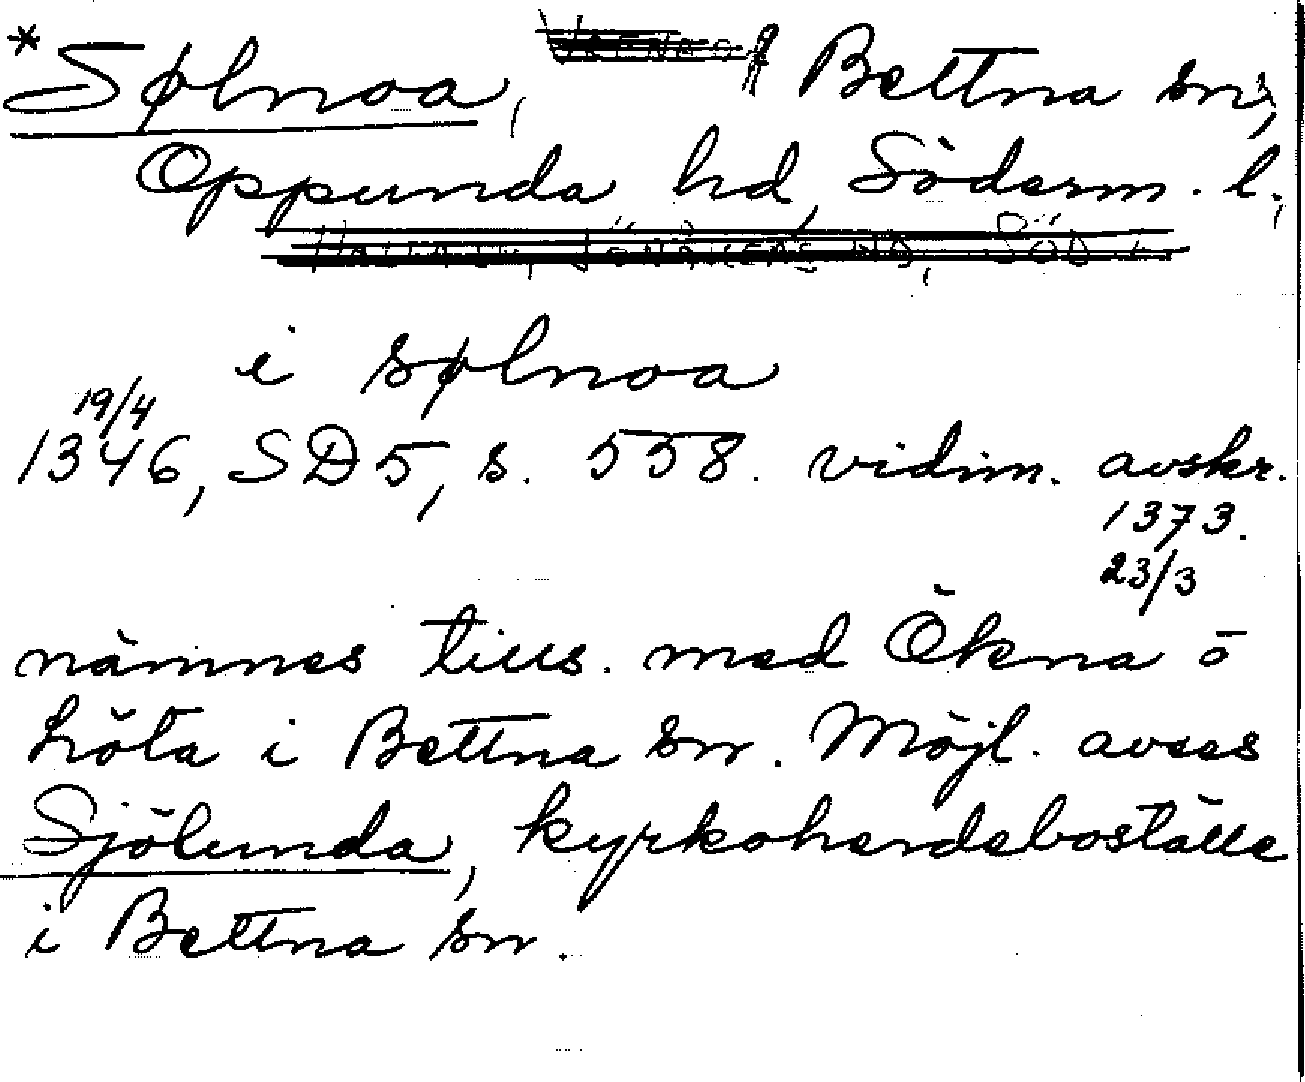 *Sølnoa, f Bettna sn,
Oppunda hd, Söderm. l.
i sølnoa
19/4
1346, SD 5, s. 558. vidim. avskr.
1373.
23/3
nämnes tills. med Ökna o
Löta i Bettna sn. Möjl. avses
Sjölunda, kyrkoherdeboställe
i Bettna sn.